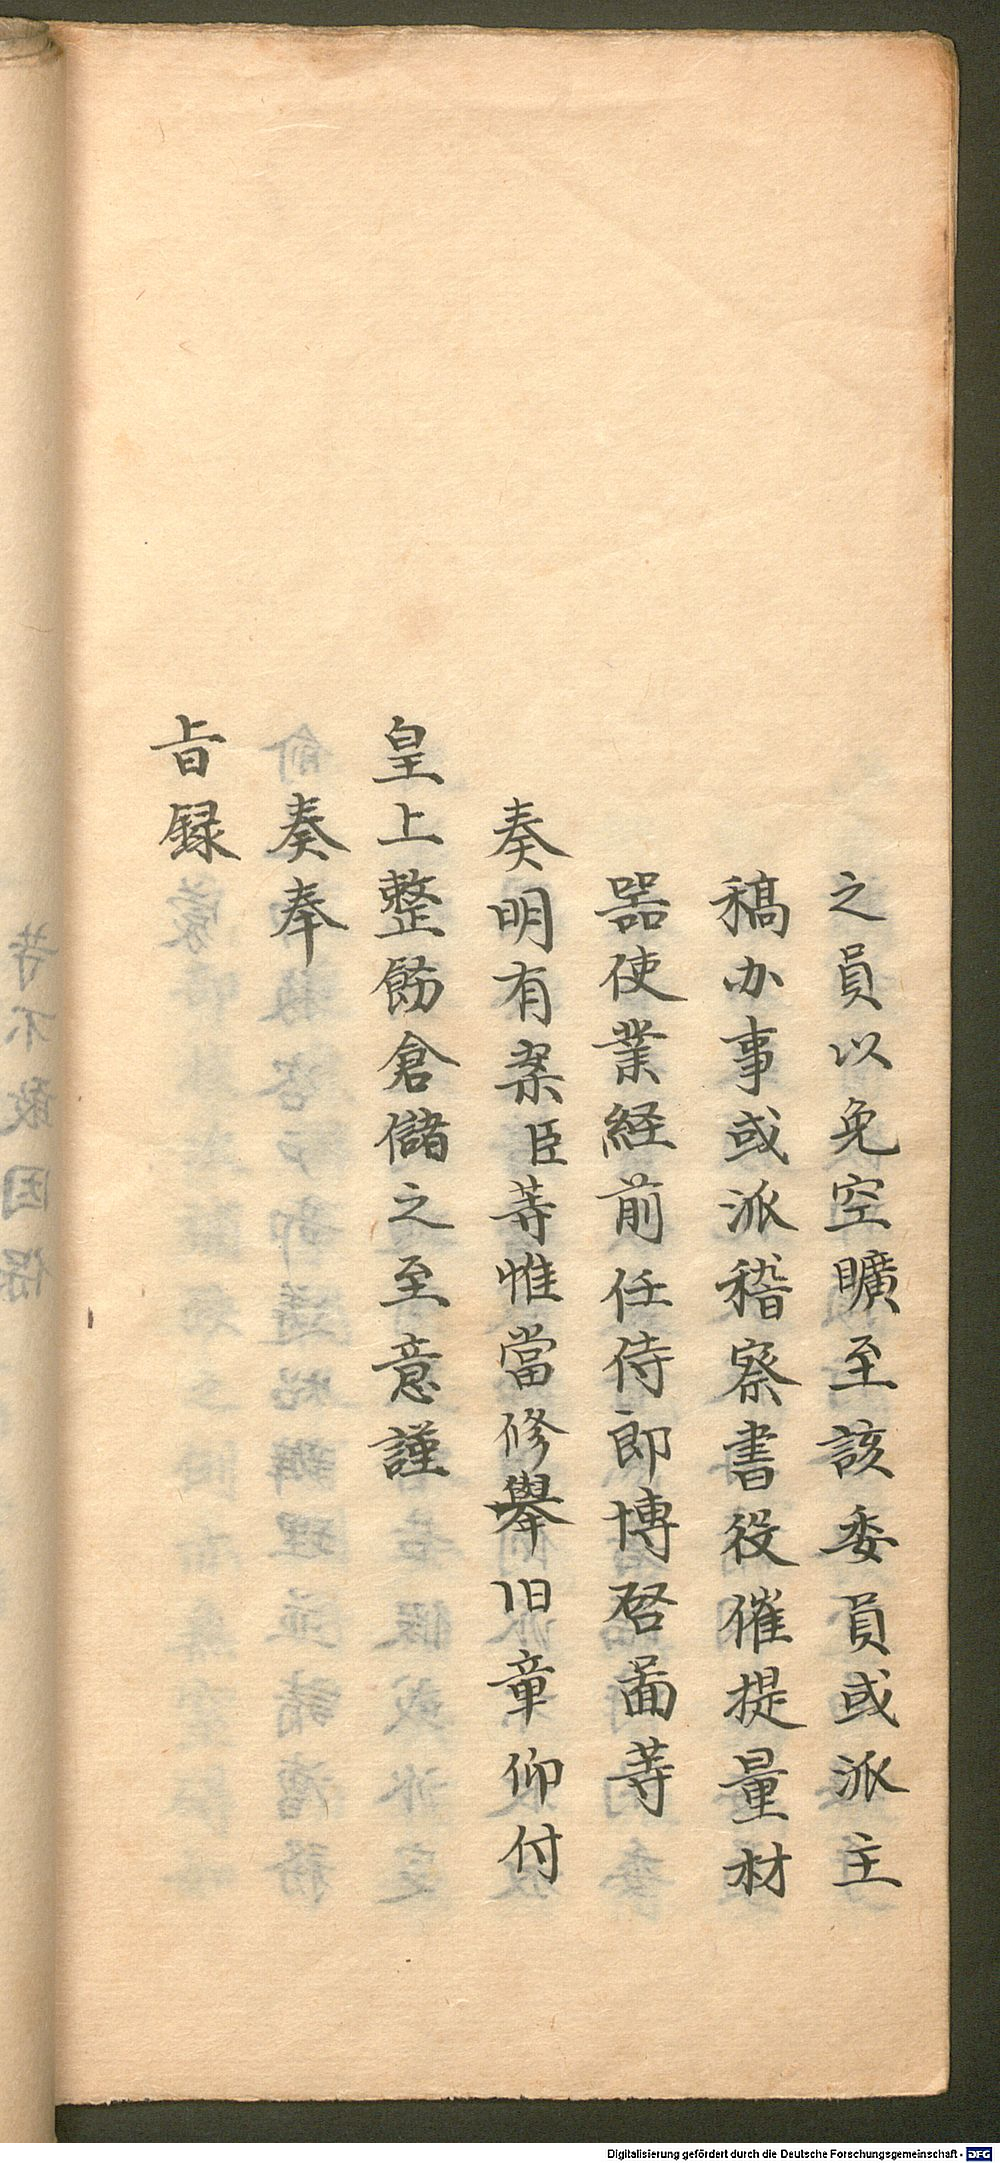 之員以免空曠至該委員或派主
稿办事或派稽察書役催提量材
器使業經前任侍郎博啓面等
奏明有案臣等惟當修舉旧章仰付
皇上整飭倉儲之至意謹
奏奉
旨録
Digitalisierung gefördert durch die Deutsche Forschungsgemeinschaft - DFG